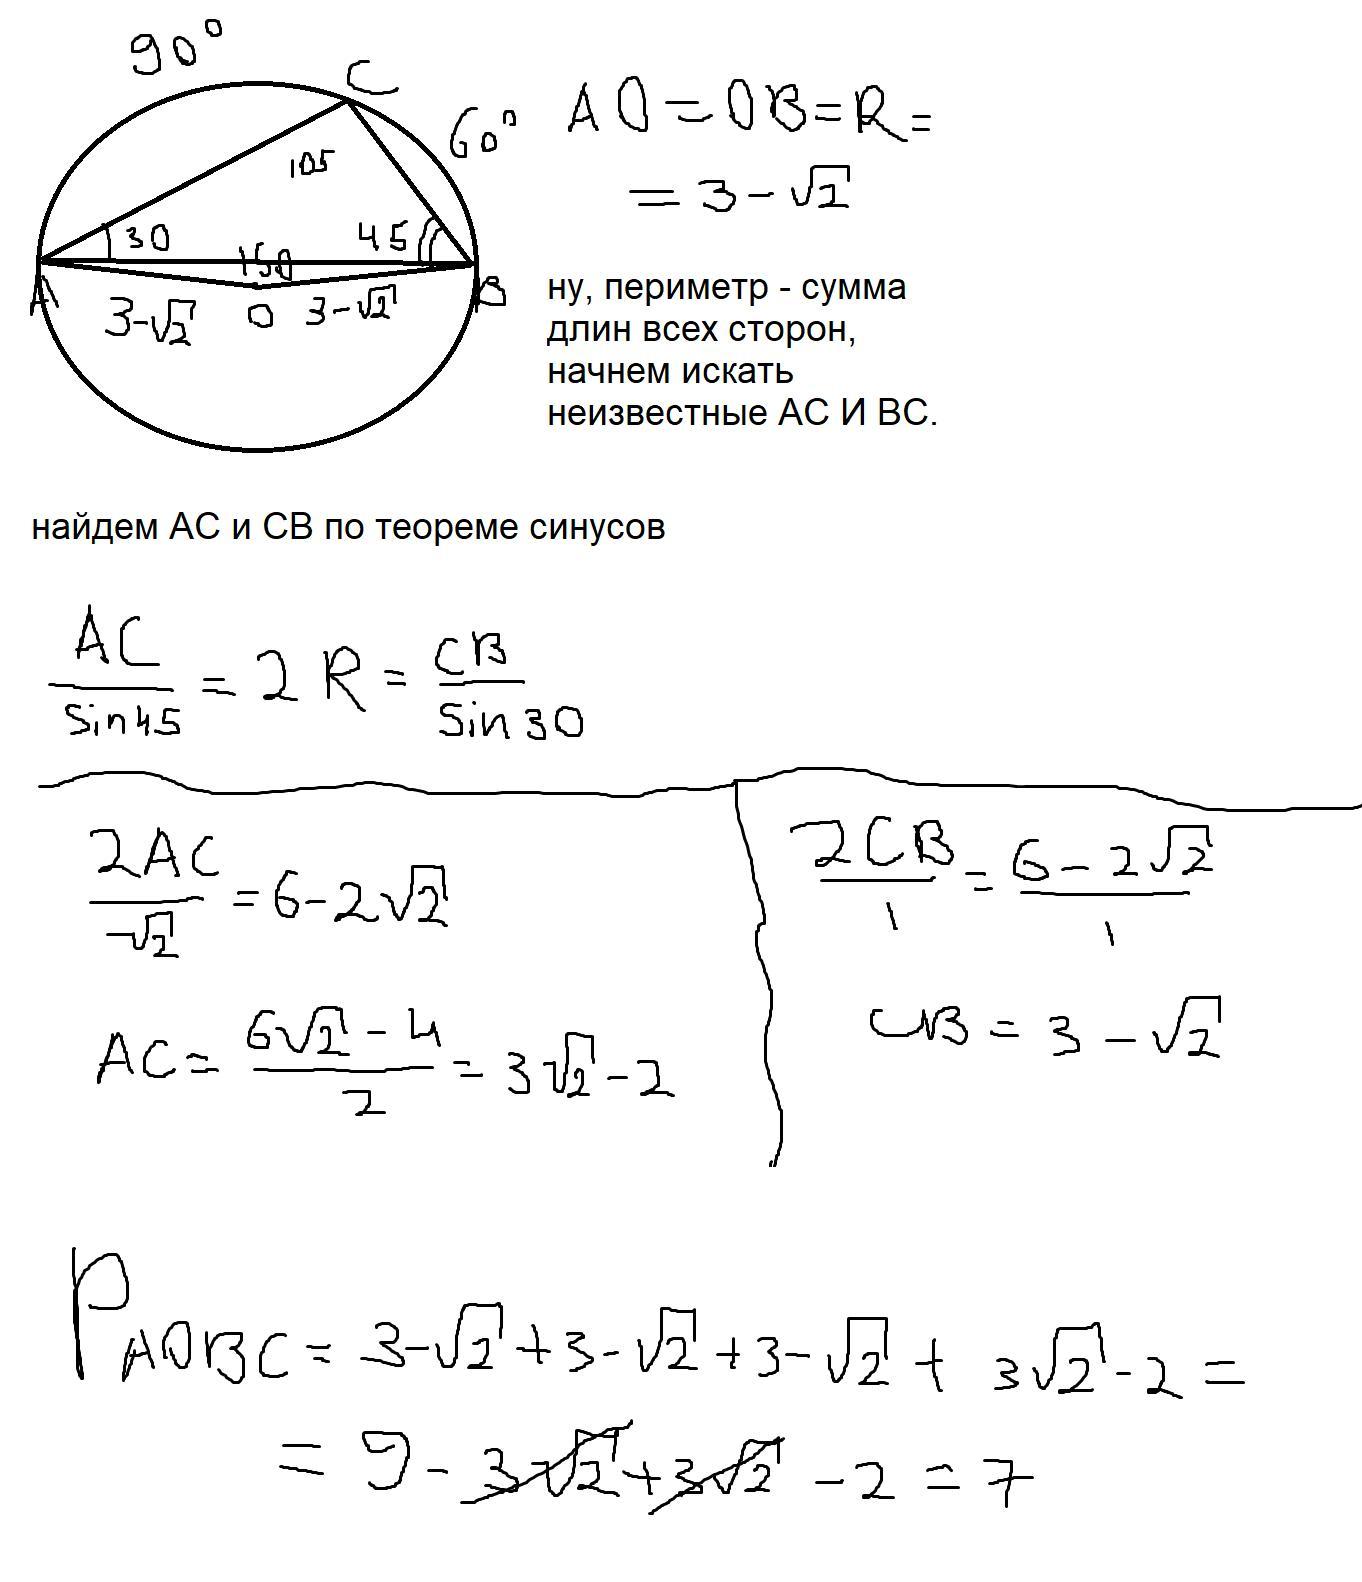 90°
C
60°
AO = OB = R =
= 3 - √2
105
30
45
150
A
B
3-√2 O 3-√2
ну, периметр - сумма
длин всех сторон,
начнем искать
неизвестные АС И ВС.
найдем АС и СВ по теореме синусов
AC/sin45 = 2R = CB/sin30
2AC/√2 = 6-2√2
2CB/1 = 6-2√2/1
AC = 6√2-4/2 = 3√2-2
CB = 3-√2
PAOBC = 3-√2+3-√2+3-√2+3√2-2=
= 9-3√2+3√2-2=7